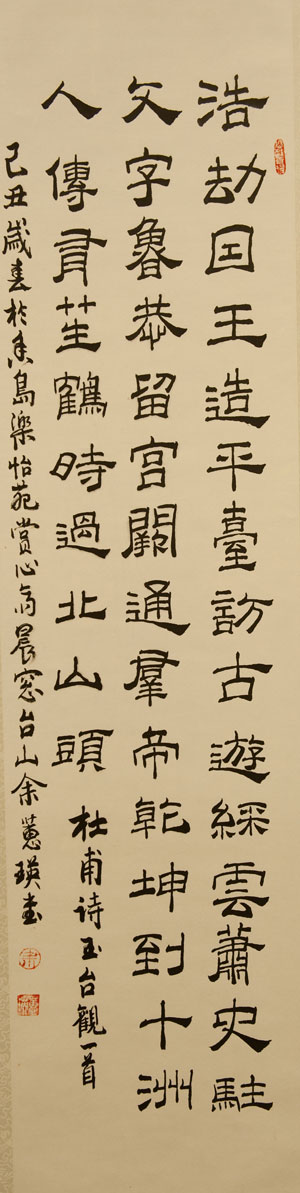 浩劫囙王造平臺訪古遊綵雲蕭史駐
文字魯恭留宮闕通羣帝乾坤到十洲
人傳有笙鶴時過北山頭
杜甫诗玉台觀一首
己丑歲春於香島樂怡苑賞心斋晨窓台山余蕙瑛書